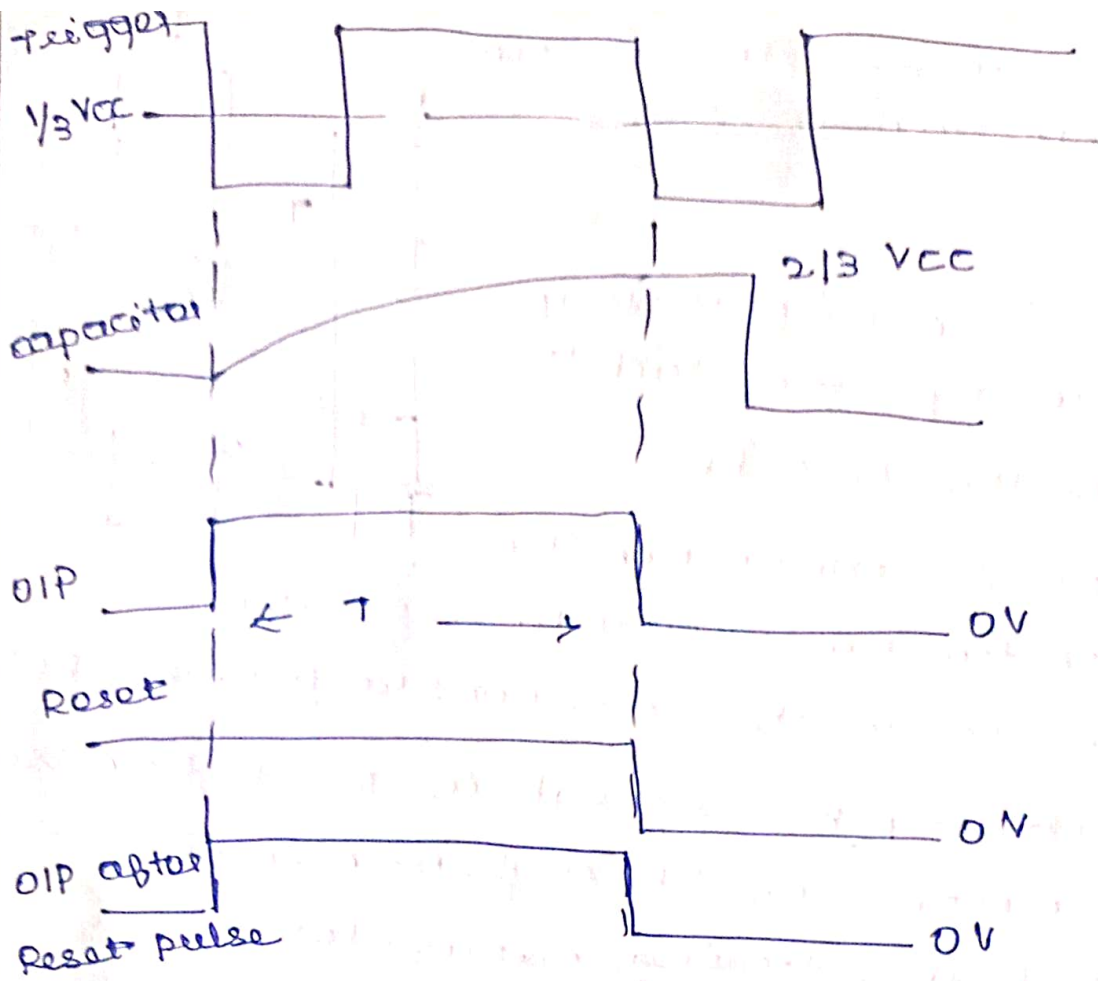 trigger
1/3 VCC
2/3 VCC
capacitor
O/P
T
0V
Reset
0V
O/P after
Reset pulse
0V